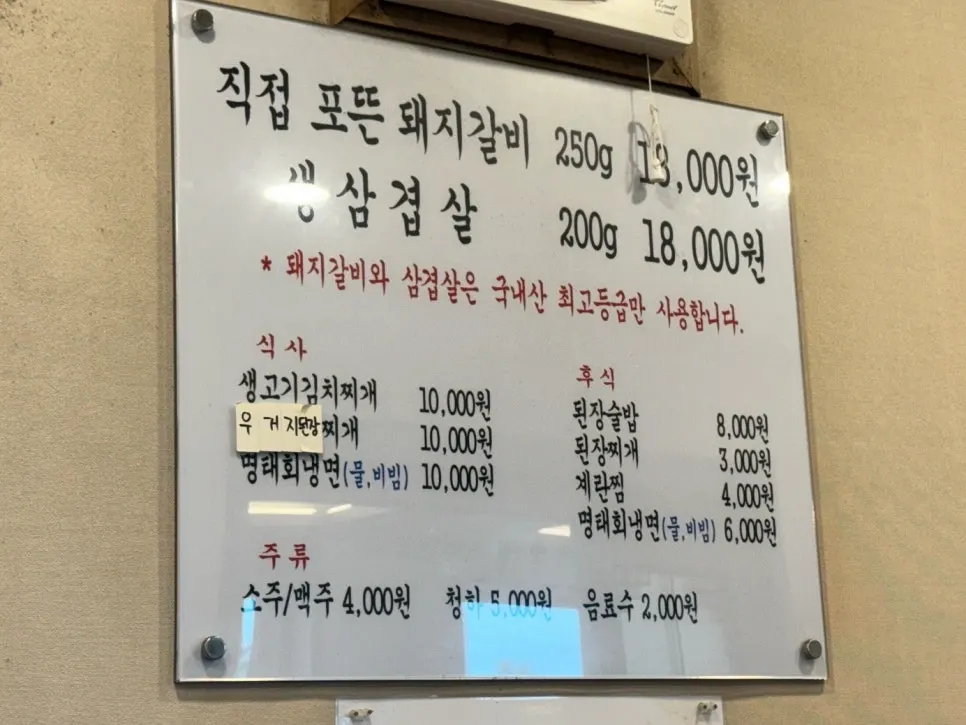 직접 포뜬 돼지갈비 250g 18,000원
생삼겹살 200g 18,000원
* 돼지갈비와 삼겹살은 국내산 최고등급만 사용합니다.
식사
생고기김치찌개 10,000원
우거지된장찌개 10,000원
명태회냉면(물,비빔) 10,000원
후식
된장술밥 8,000원
된장찌개 3,000원
계란찜 4,000원
명태회냉면(물,비빔) 6,000원
주류
소주/맥주 4,000원 청하 5,000원 음료수 2,000원